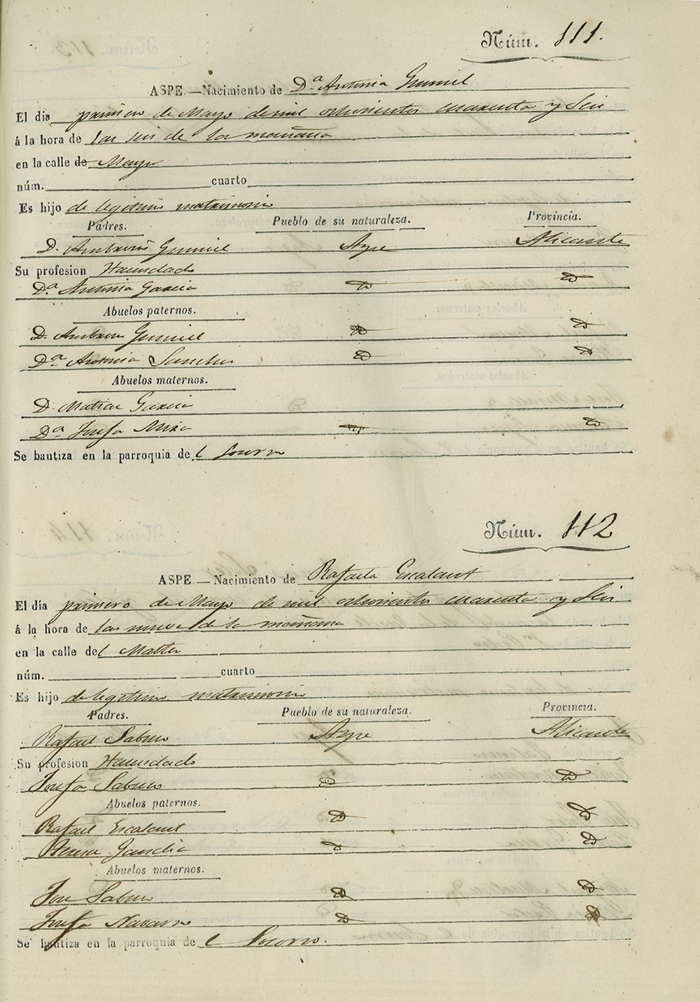 Núm. 111.
ASPE.—Nacimiento de D.ª Antonia Gumiel
El dia primero de Mayo de mil ochocientos cuarenta y Seis
á la hora de las seis de la mañana
en la calle de Mayor
núm. cuarto
Es hijo de legitimo matrimonio
Padres. Pueblo de su naturaleza. Provincia.
D. Ambrosio Gumiel Aspe Alicante
Su profesion Hacendado
D.ª Antonia Garcia
Abuelos paternos.
D. Ambrosio Gumiel
D.ª Antonia Sanchez
Abuelos maternos.
D. Matias Garcia
D.ª Josefa
Se bautiza en la parroquia de l Socorro
Núm. 112
ASPE.—Nacimiento de Rafaela Escalant
El día primero de Mayo de mil ochocientos cuarenta y Seis
á la hora de las nueve de la mañana
en la calle de
núm. cuarto
Es hijo de legitimo matrimonio
Padres. Pueblo de su naturaleza. Provincia.
Rafael Aspe Alicante
Su profesion Hacendado
Josefa
Abuelos paternos.
Rafael Escalant
Teresa
Abuelos maternos.
Jose
Josefa Navarro
Se bautiza en la parroquia de l Socorro.